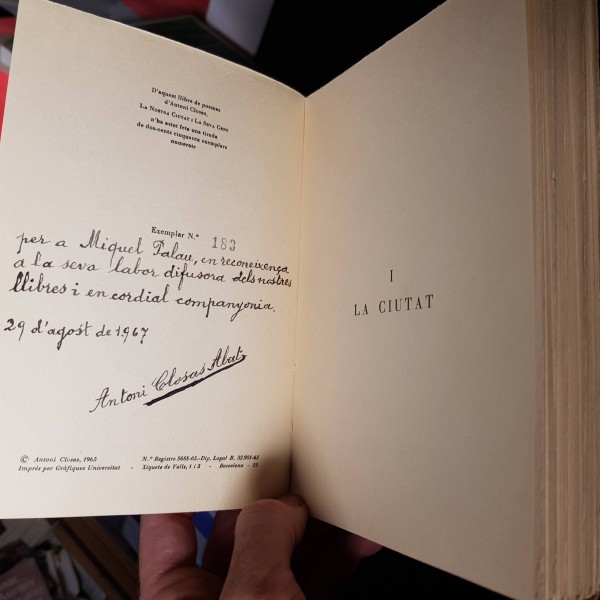 D'aquest llibre de poemes
d'Antoni Closas,
LA NOSTRA CIUTAT I LA SEVA GENT
n'ha estat feta una tirada
de dos-cents cinquanta exemplars
numerats
Exemplar N.º 183
per a Miquel Palau, en reconeixença
a la seva labor difusora dels nostres
llibres i en cordial companyonia.
29 d'agost de 1967
Antoni Closas Abat
© Antoni Closas, 1965 N.º Registre 5688-65.-Dip. Legal B.
Imprés per Gràfiques Universitat - Xiquets de Valls, 1 i 3 - Barcelona -
I
LA CIUTAT